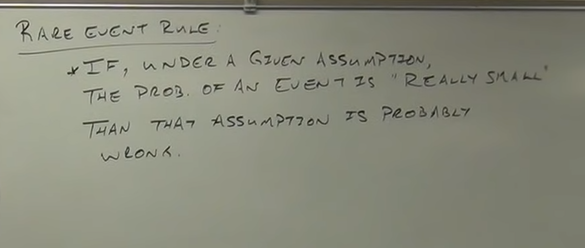 RARE EVENT RULE:
* IF, UNDER A GIVEN ASSUMPTION,
THE PROB. OF AN EVENT IS "REALLY SMALL"
THAN THAT ASSUMPTION IS PROBABLY
WRONG.